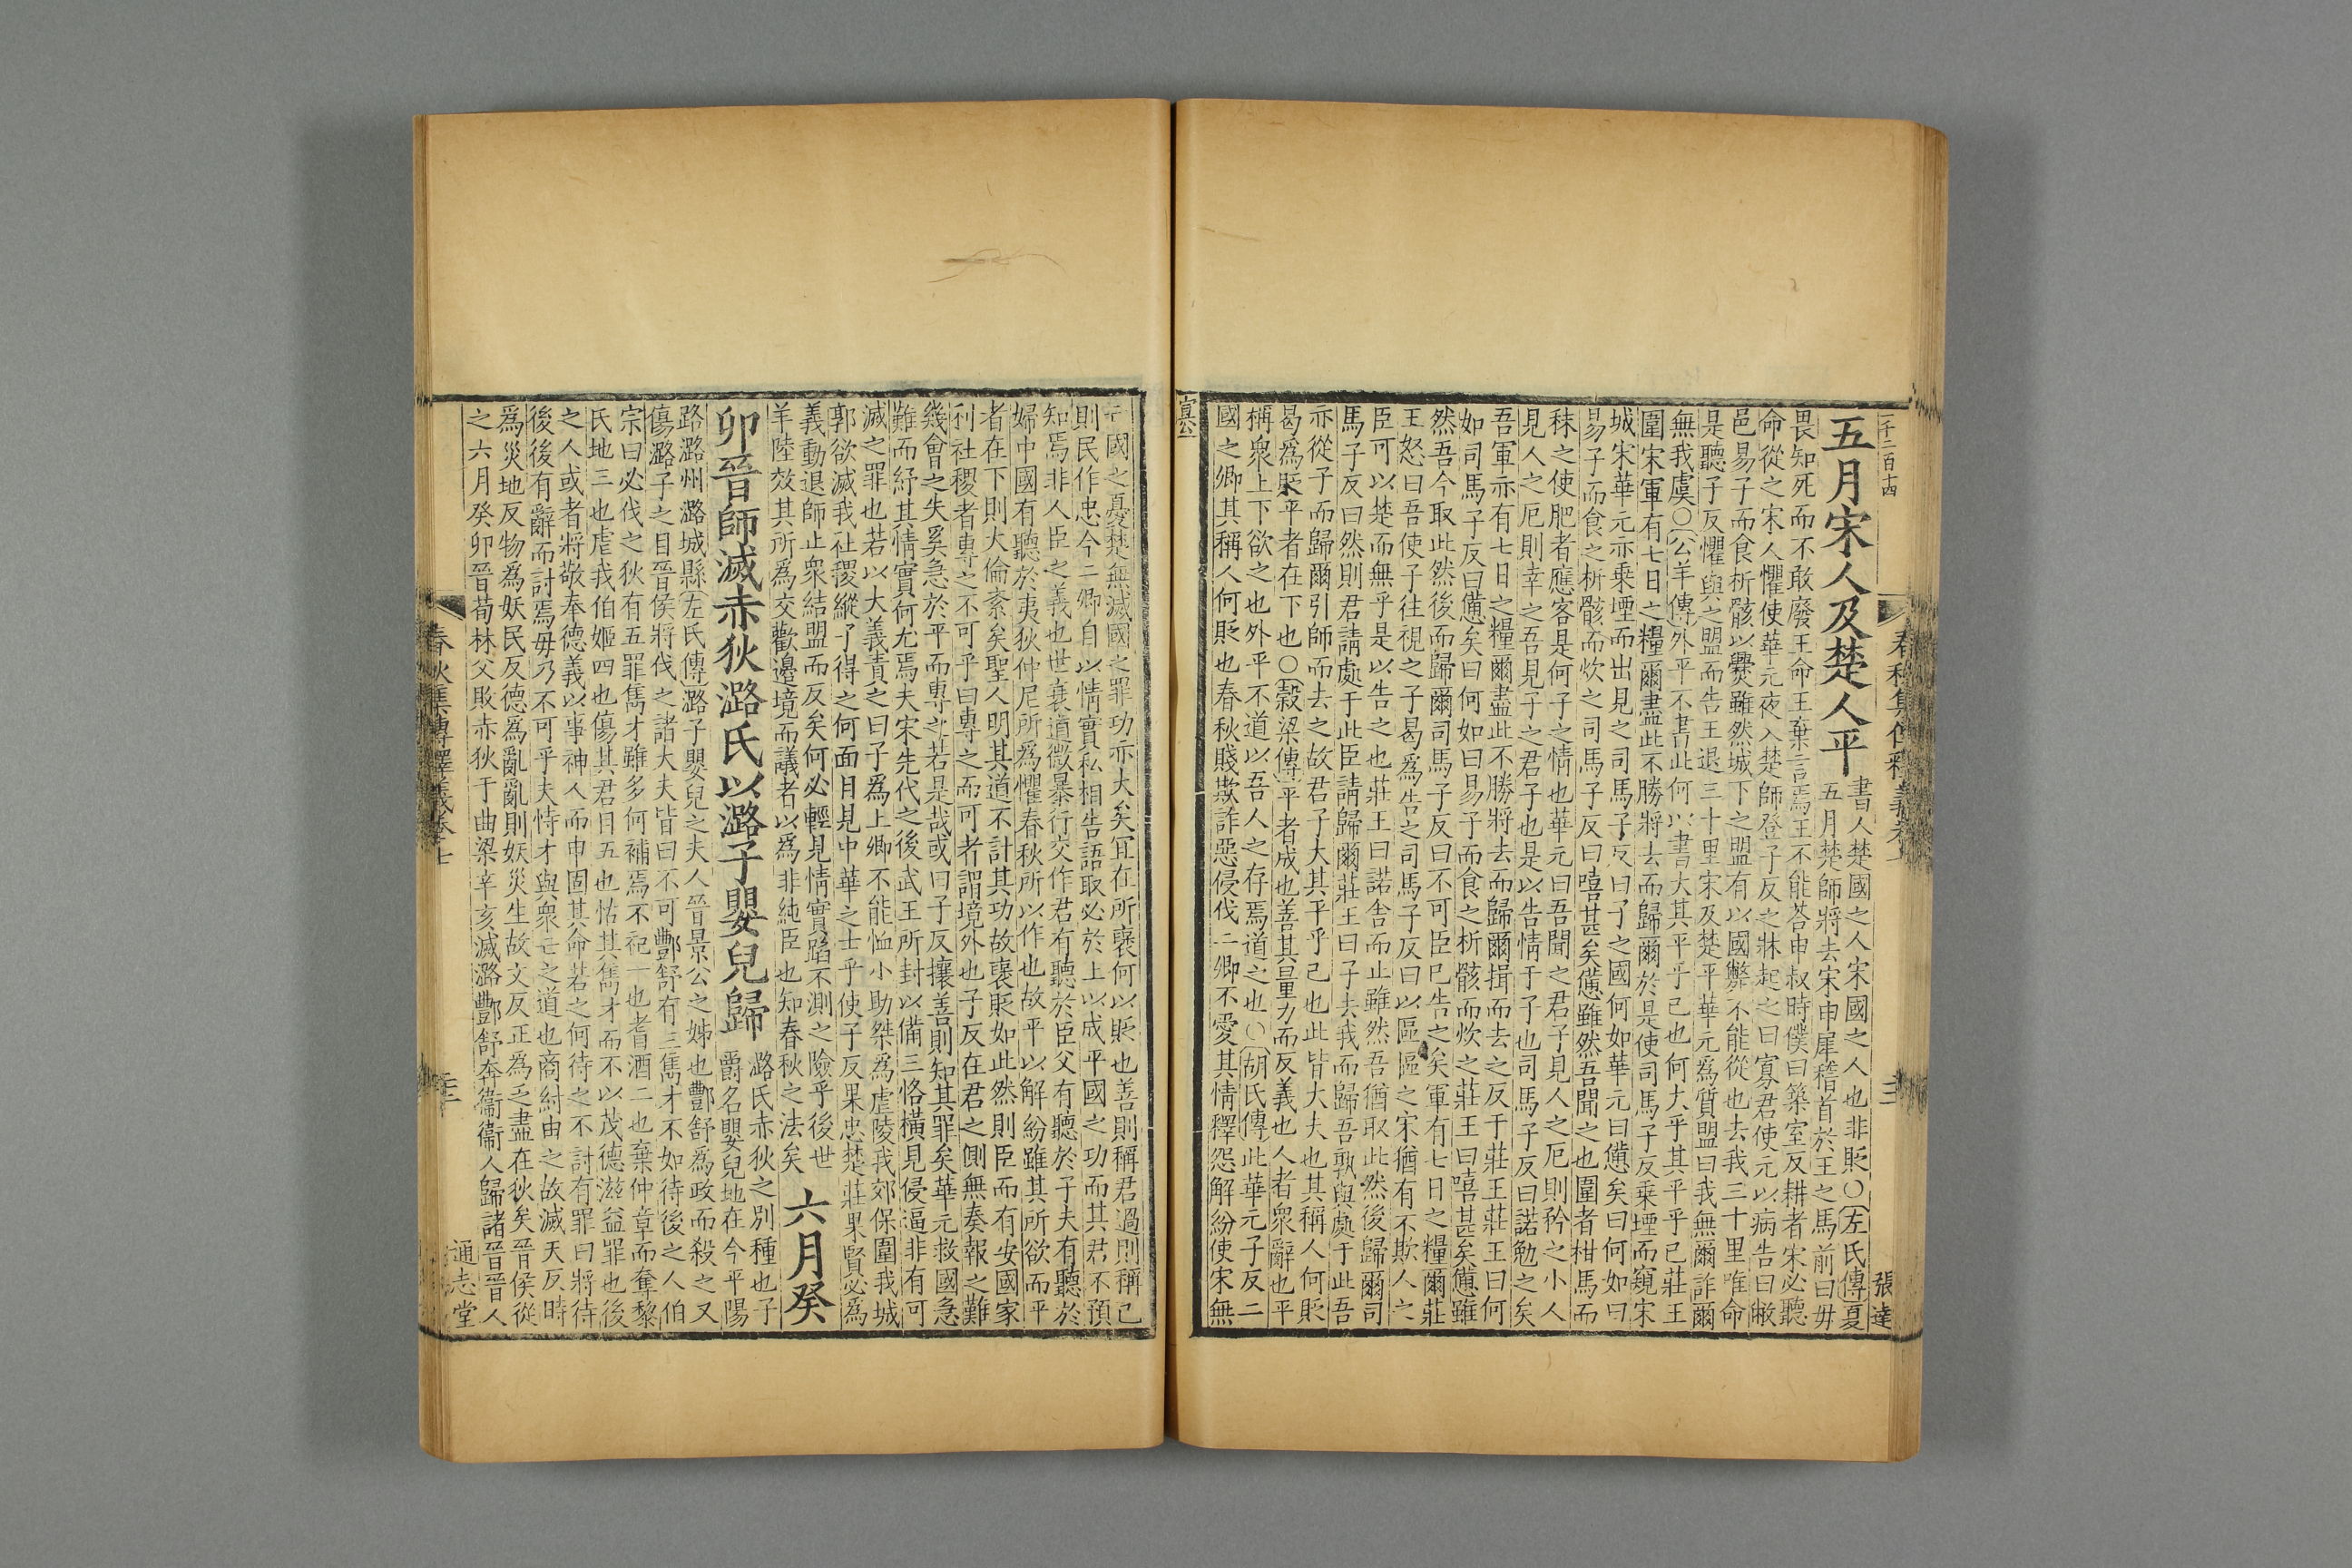 五月宋人及楚人平
書人楚國之人宋國之人也非貶〇左氏傳夏
五月楚師將去宋申犀稽首於王之馬前曰毋
畏知死而不敢廢王命王棄言焉王不能荅申叔時僕曰築室反耕者宋必聽
命從之宋人懼使華元夜入楚師登子反之牀起之曰寡君使元以病告曰敝
邑易子而食析骸以爨雖然城下之盟有以國斃不能從也去我三十里唯命
是聽子反懼與之盟而告王退三十里宋及楚平華元為質盟曰我無爾詐爾
無我虞〇公羊傳外平不書此何以書大其平乎已也何大乎其平乎已莊王
圍宋軍有七日之糧爾盡此不勝將去而歸爾於是使司馬子反乗堙而窺宋
城宋華元亦乗堙而出見之司馬子反曰子之國何如華元曰憊矣曰何如曰
易子而食之析骸而炊之司馬子反曰嘻甚矣憊雖然吾聞之也圍者柑馬而
秣之使肥者應客是何子之情也華元曰吾聞之君子見人之厄則矜之小人
見人之厄則幸之吾見子之君子也是以告情于子也司馬子反曰諾勉之矣
吾軍亦有七日之糧爾盡此不勝將去而歸爾揖而去之反于莊王莊王曰何
如司馬子反曰憊矣曰何如曰易子而食之析骸而炊之莊王曰嘻甚矣憊雖
然吾今取此然後而歸爾司馬子反曰不可臣已告之矣軍有七日之糧爾莊
王怒曰吾使子往視之子曷為告之司馬子反曰以區區之宋猶有不欺人之
臣可以楚而無乎是以告之也莊王曰諾舍而止雖然吾猶取此然後歸爾司
馬子反曰然則君請處于此臣請歸爾莊王曰子去我而歸吾孰與處于此吾
亦從子而歸爾引師而去之故君子大其平乎已也此皆大夫也其稱人何貶
曷為貶平者在下也〇穀梁傳平者成也善其量力而反義也人者衆辭也平
稱衆上下欲之也外平不道以吾人之存焉道之也〇胡氏傳此華元子反二
國之卿其稱人何貶也春秋賤欺詐惡侵伐二卿不愛其情釋怨解紛使宋無
亡國之憂楚無滅國之罪功亦大矣宜在所襃何以貶也善則稱君過則稱己
則民作忠今二卿自以情實私相告語取必於上以成平國之功而其君不預
知焉非人臣之義也世衰道微暴行交作君有聽於臣父有聽於子夫有聽於
婦中國有聽於夷狄仲尼所為懼春秋所以作也故平以解紛雖其所欲而平
者在下則大倫紊矣聖人明其道不計其功故襃貶如此然則臣而有安國家
利社稷者專之不可乎曰專之而可者謂境外也子反在君之側無奏報之難
幾會之失奚急於平而專之若是哉或曰子反攘善則知其罪矣華元救國急
難而紓其情實何尤焉夫宋先代之後武王所封以備三恪橫見侵逼非有可
滅之罪也若以大義責之曰子為上卿不能恤小助桀為虐陵我郊保圍我城
郭欲滅我社稷縱了得之何面目見中華之士乎使子反果忠楚莊果賢必為
義動退師止衆結盟而反矣何必輕見情實蹈不測之險乎後世
羊陸效其所為交歡邊境而議者以為非純臣也知春秋之法矣
六月癸
卯晉師滅赤狄潞氏以潞子嬰兒歸
潞氏赤狄之別種也子
爵名嬰兒地在今平陽
路潞州潞城縣左氏傳潞子嬰兒之夫人晉景公之姊也酆舒為政而殺之又
傷潞子之目晉侯將伐之諸大夫皆曰不可酆舒有三雋才不如待後之人伯
宗曰必伐之狄有五罪雋才雖多何補焉不祀一也耆酒二也棄仲章而奪黎
氏地三也虐我伯姬四也傷其君目五也怙其雋才而不以茂德滋益罪也後
之人或者將敬奉德義以事神人而申固其命若之何待之不討有罪曰將待
後後有辭而討焉毋乃不可乎夫恃才與衆亡之道也商紂由之故滅天反時
為災地反物為妖民反德為亂亂則妖災生故文反正為乏盡在狄矣晉侯從
之六月癸卯晉荀林父敗赤狄于曲梁辛亥滅潞酆舒奔衞衞人歸諸晉晉人
春秋集傳釋義卷七
通志堂
張達